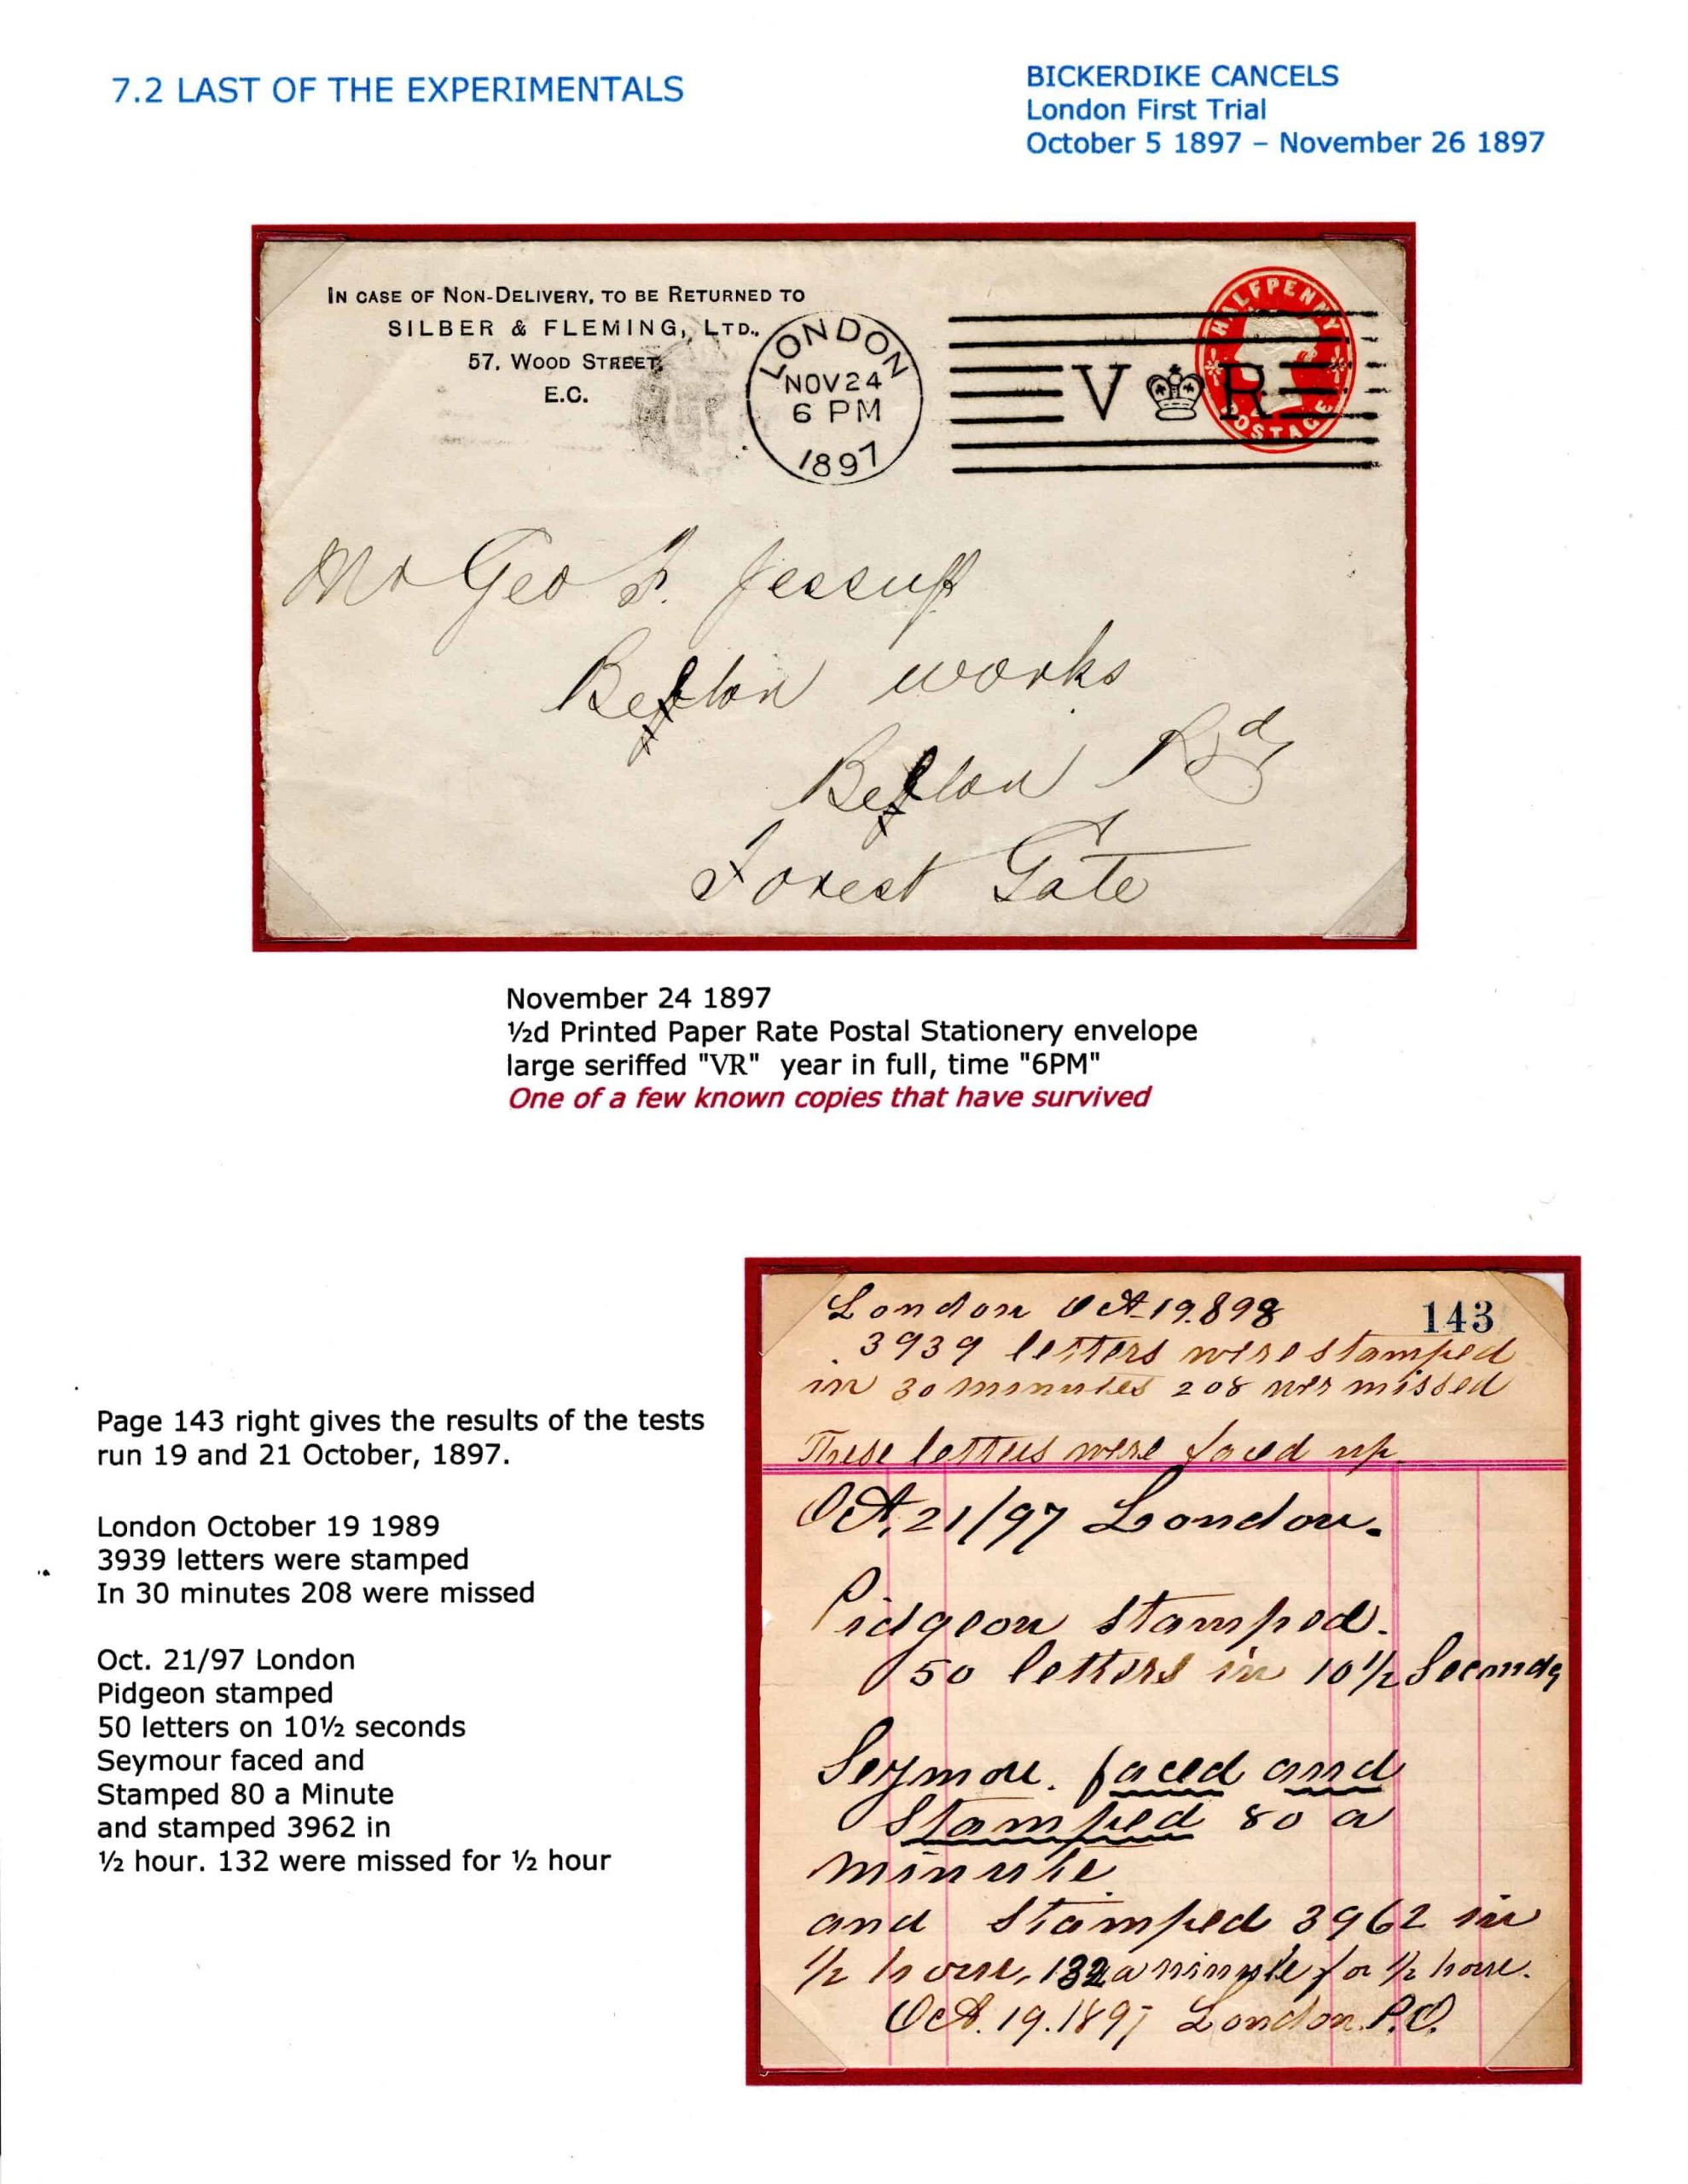 7.2 LAST OF THE EXPERIMENTALS
BICKERDIKE CANCELS
London First Trial
October 5 1897 – November 26 1897
IN CASE OF NON-DELIVERY, TO BE RETURNED TO
SILBER & FLEMING, LTD.,
57, WOOD STREET,
E.C.
LONDON
NOV 24
6 PM
1897
V R
HALFPENNY
POSTAGE
Mr Geo F. Jessup
works
Rd
Forest Gate
November 24 1897
½d Printed Paper Rate Postal Stationery envelope
large seriffed "VR" year in full, time "6PM"
One of a few known copies that have survived
Page 143 right gives the results of the tests
run 19 and 21 October, 1897.
London October 19 1989
3939 letters were stamped
In 30 minutes 208 were missed
Oct. 21/97 London
Pidgeon stamped
50 letters on 10½ seconds
Seymour faced and
Stamped 80 a Minute
and stamped 3962 in
½ hour. 132 were missed for ½ hour
143
London Oct 19.898
3939 letters were stamped
in 30 minutes 208 wer missed
These letters were faced up.
Oct. 21/97 London.
Pidgeon stamped.
50 letters in 10½ Seconds
Seymou. faced and
Stamped 80 a
minute.
and Stamped 3962 in
½ houre, 132 a minute for ½ houre.
Oct. 19.1897 London. P.O.